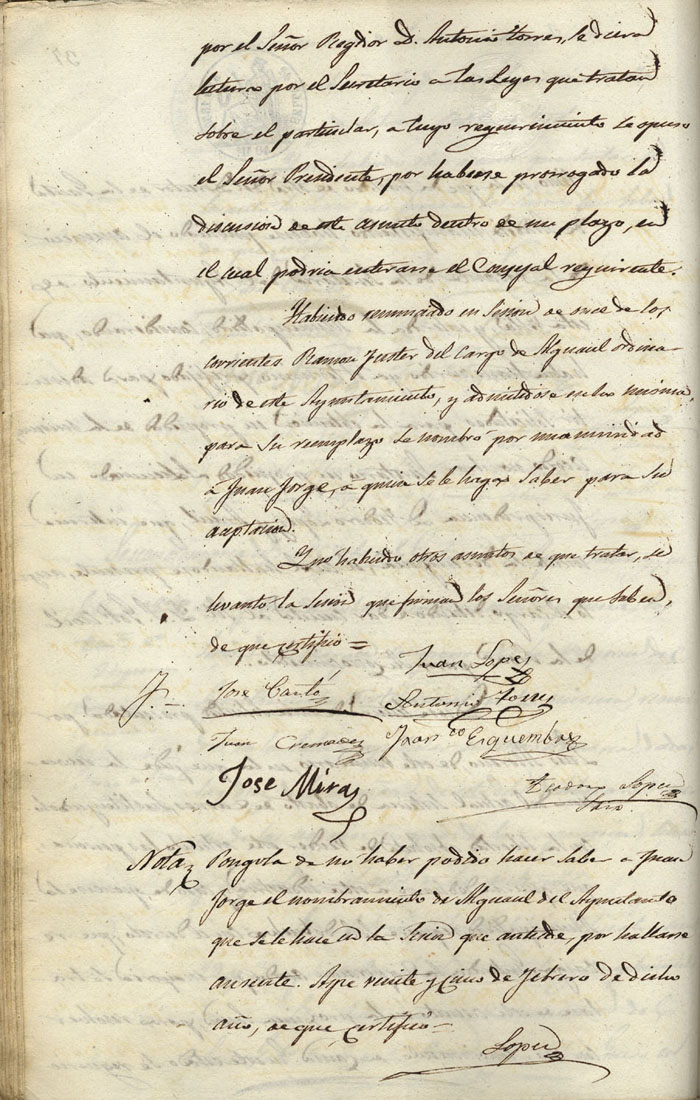 por el Señor Regdior D. Antonio Torres, se diera
letura por el Secretario a las Leyes que tratan
sobre el particular, a cuyo requirimiento se opuso
el Señor Presidente, por haberse prorrogado la
discusion de este asunto dentro de un plazo, en
el cual podria enterarse el Consejal requirente.
Habiendo renunciado en Sesion de once de los
corrientes Ramon Juster del cargo de Alguacil ordina-
rio de este Ayuntamiento, y admitidose en la misma
para su remplazo se nombró por unanimidad
á Juan Jorge, á quien se le haga saber para su
aceptacion.
Y no habiendo otros asuntos de que tratar, se
levanto la Sesion que firman los Señores que saben,
de que certifico =
Juan Lopez
Jose Cantó
Antonio Torres
Juan Cremades Fran.co Esquembre
Jose Mira
Teodoro Lopez
Srio
Nota Pongola de no haber podido hacer saber a Juan
Jorge el nombramiento de Alguacil del Ayuntamto
que se le hace en la Sesion que antecede, por hallarse
ausente. Aspe veinte y cinco de Febrero de dicho
año, de que certifico =
Lopez